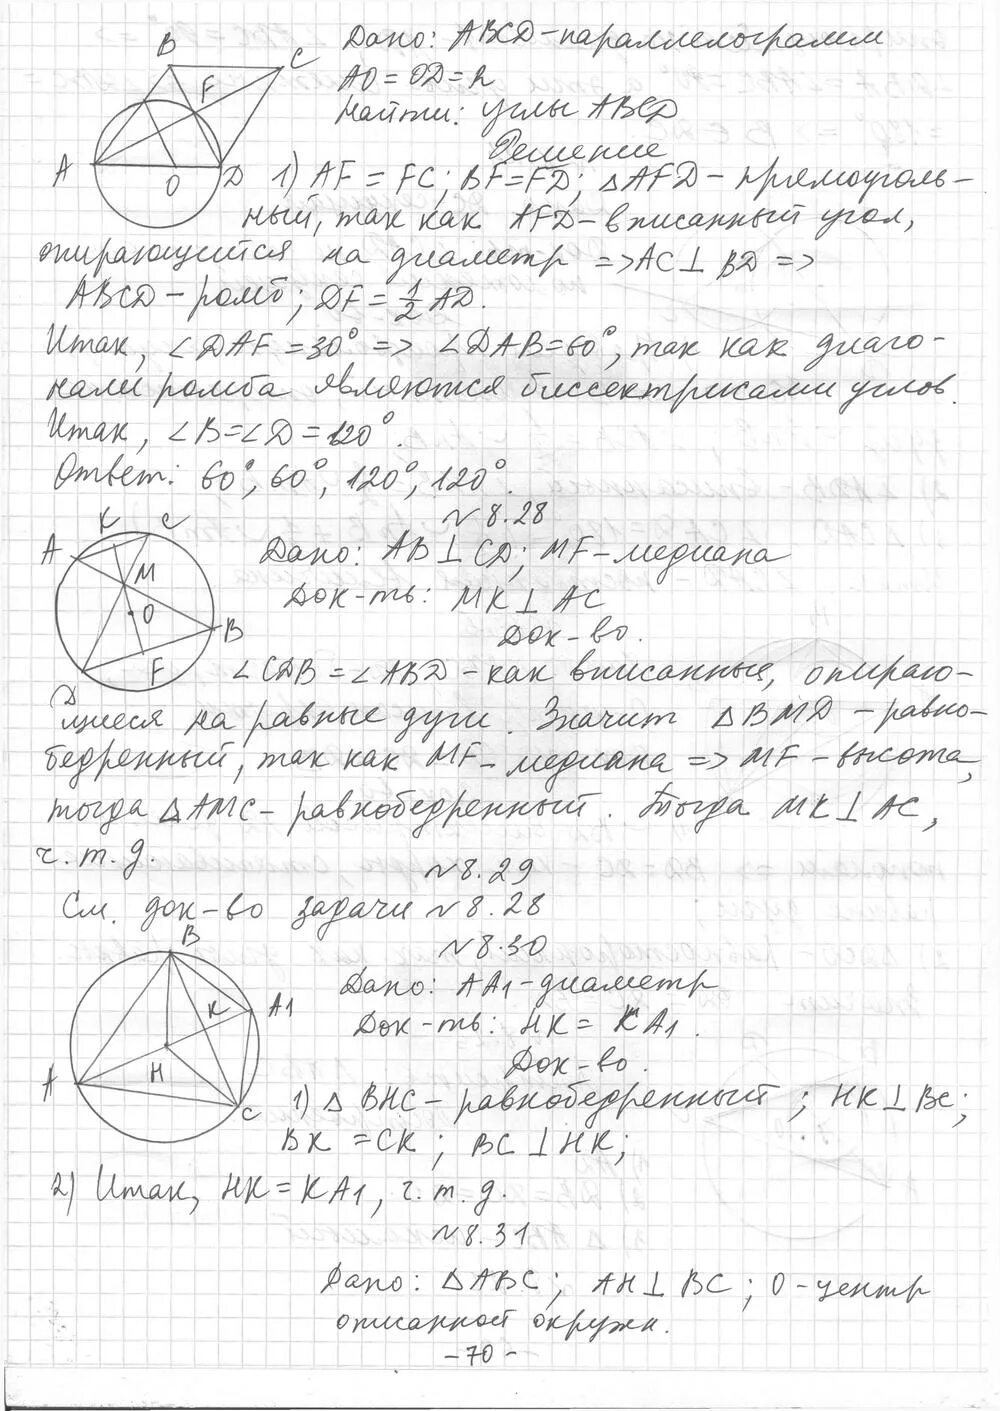 Дано: ABCD-параллелограмм
AO = OD = R
Найти: углы ABCD
Решение
1) AF = FC; BF = FD; △AFD - прямоуголь-
ный, так как AFD - вписанный угол,
опирающийся на диаметр => AC ⊥ BD =>
ABCD - ромб; DF = 1/2 AD.
Итак, ∠DAF = 30° => ∠DAB = 60°, так как диаго-
нали ромба являются биссектрисами углов.
Итак, ∠B = ∠D = 120°.
Ответ: 60°, 60°, 120°, 120°.
B
C
F
A
O
D
~ 8.28
Дано: AB ⊥ CD; MF - медиана
Док-ть: MK ⊥ AC
Док-во.
∠CDB = ∠ABD - как вписанные, опираю-
щиеся на равные дуги. Значит △BMD - равно-
бедренный, так как MF - медиана => MF - высота,
тогда △AMC - равнобедренный. Тогда MK ⊥ AC,
ч. т. д.
K
C
A
M
O
B
F
D
~ 8.29
См. док-во задачи ~ 8.28
~ 8.30
Дано: AA1 - диаметр
Док-ть: HK = KA1.
Док-во.
1) △ BHC - равнобедренный; HK ⊥ BC;
BK = CK; BC ⊥ HK;
2) Итак, HK = KA1, ч. т. д.
B
K
A1
H
A
C
~ 8.31
Дано: △ABC; AH ⊥ BC; O - центр
описанной окружн.
- 70 -